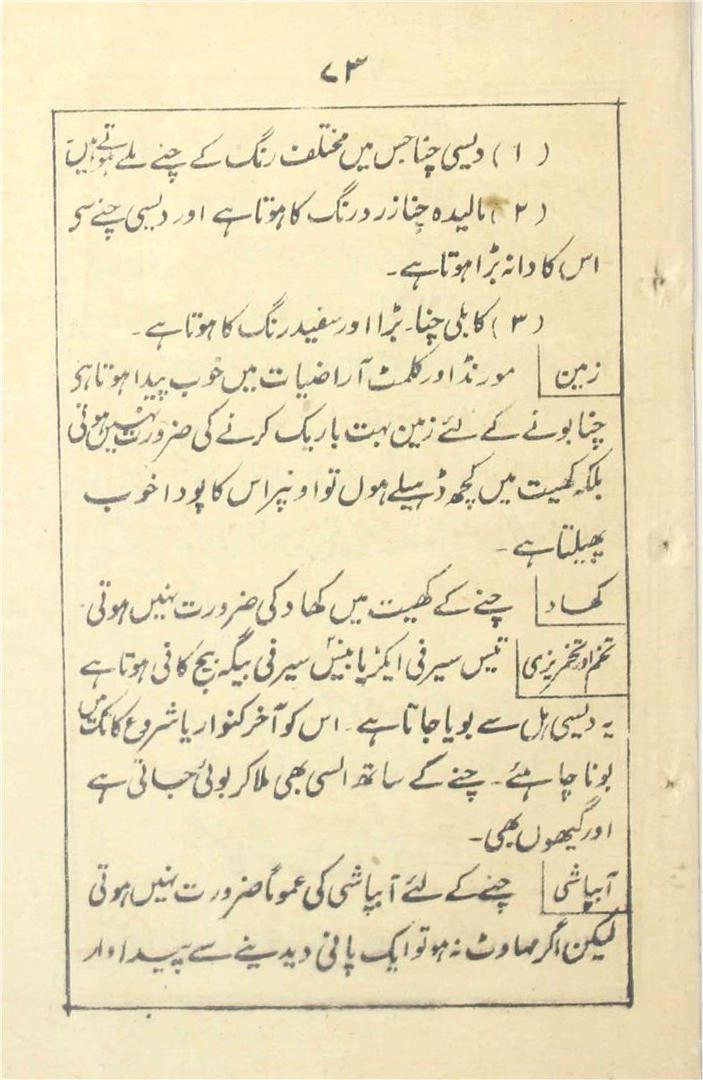 ۷۳
(۱) دیسی چنا جس میں مختلف رنگ کے چنے ملے ہوتے ہیں
(۲) مالیدہ چنا زرد رنگ کا ہوتا ہے اور دیسی چنے سی
اس کا دانہ بڑا ہوتا ہے۔
(۳) کابلی چنا۔ بڑا اور سفید رنگ کا ہوتا ہے۔
زمین مورنڈ اور کلمٹ آراضیات میں خوب پیدا ہوتا ہی
چنا بونے کے لئے زمین بہت باریک کرنے کی ضرورت نہیں ہوتی
بلکہ کھیت میں کچھ ڈہیلے ہوں تو اونپر اس کا پودا خوب
پھیلتا ہے۔
کھاد چنے کے کھیت میں کھاد کی ضرورت نہیں ہوتی۔
تخم اور تخمریزی تیس سیر فی ایکڑ یا بیس سیر فی بیگہ بیج کافی ہوتا ہے
یہ دیسی ہل سے بویا جاتا ہے۔ اس کو آخر کنوار یا شروع کاتک میں
بونا چاہئے۔ چنے کے ساتھ السی بھی ملا کر بوئی جاتی ہے
اور گیھوں بھی۔
آبپاشی چنے کے لئے آبپاشی کی عموماً ضرورت نہیں ہوتی
لیکن اگر مہاوٹ نہ ہو تو ایک پانی دیدینے سے پیداوار